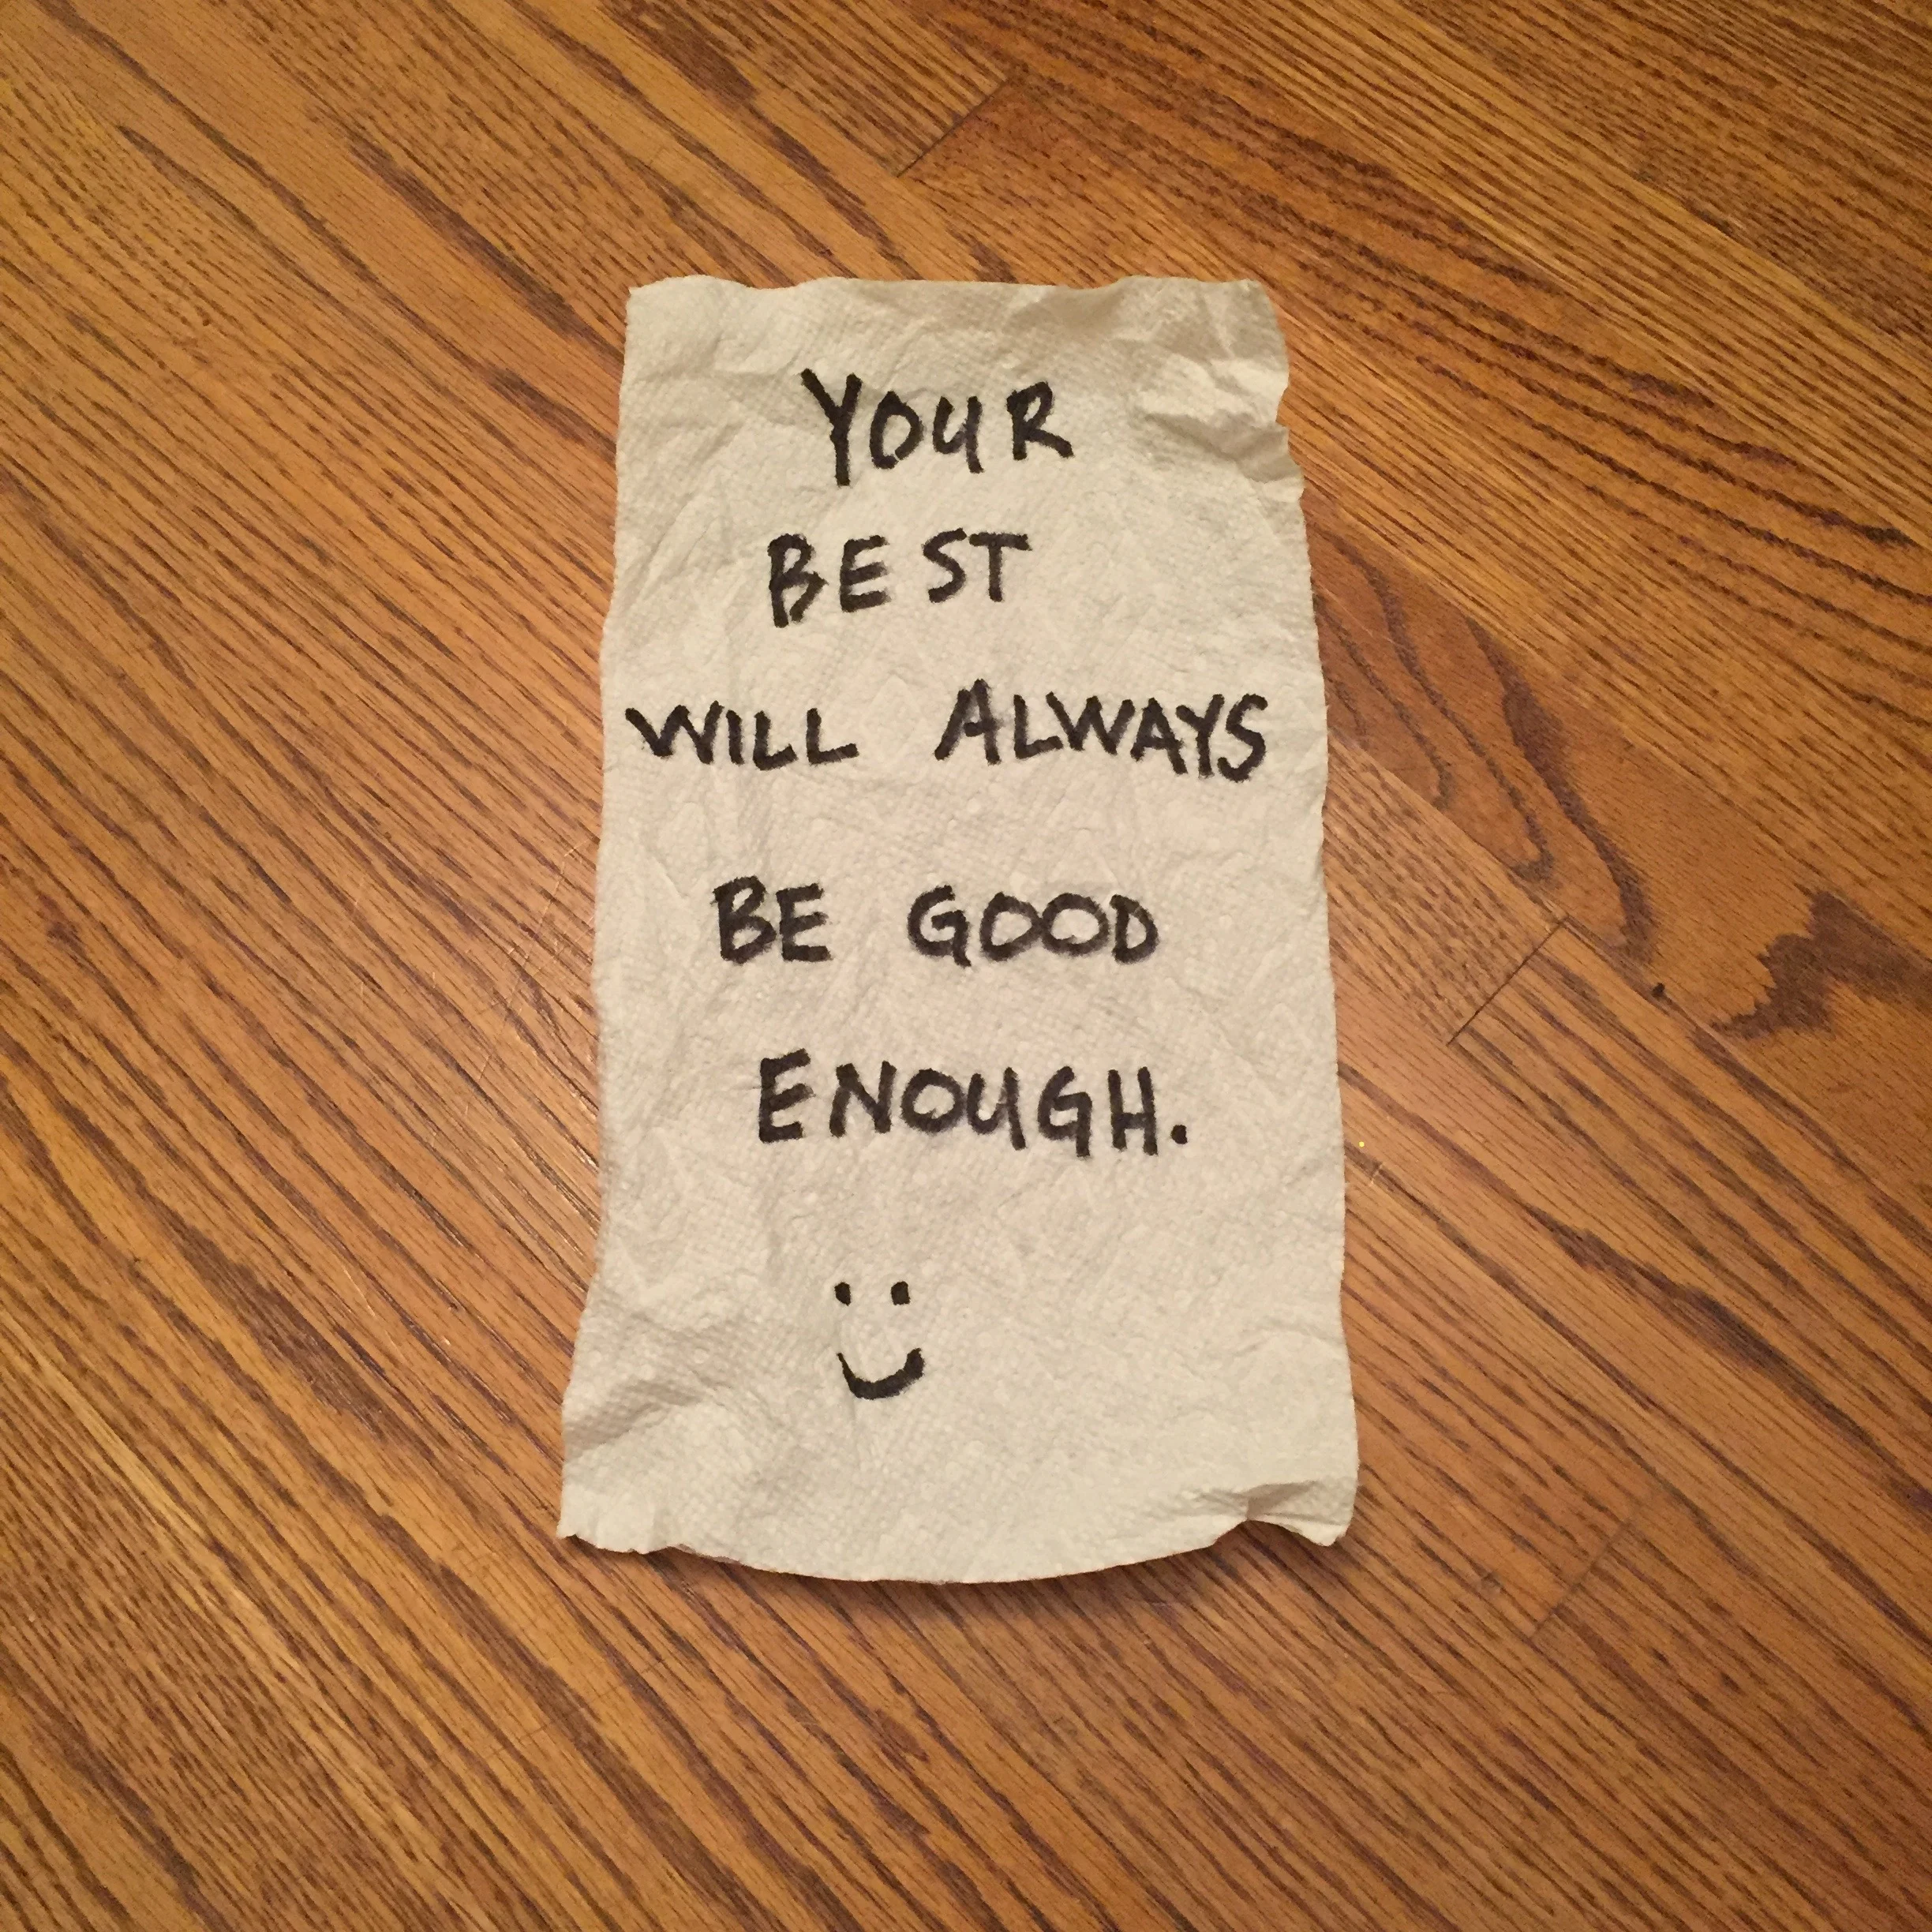 YOUR
BEST
WILL ALWAYS
BE GOOD
ENOUGH.